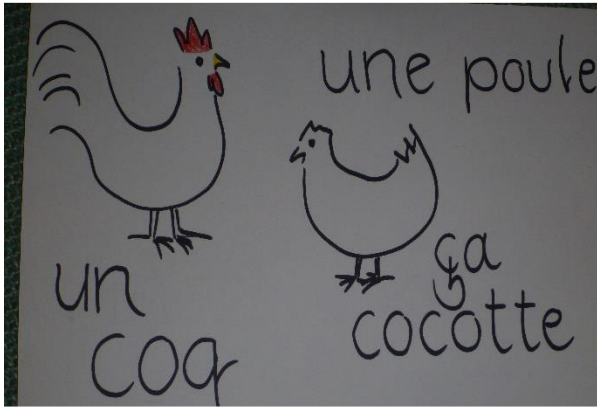 une poule
un
coq
ça
cocotte